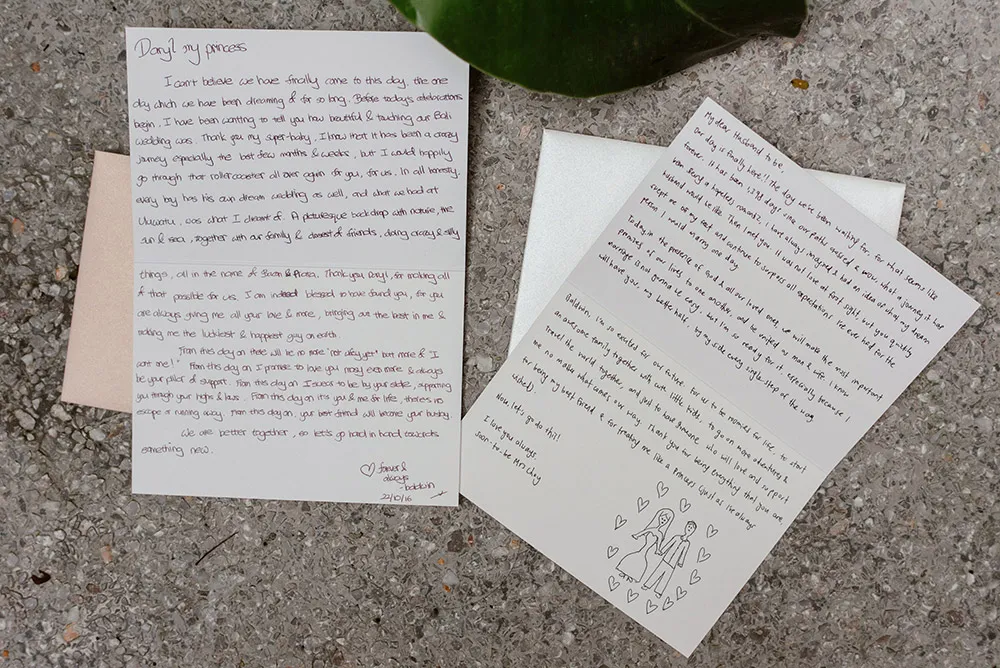 Daryl my princess
I can't believe we have finally come to this day, the one
day which we have been dreaming of for so long. Before todays celebrations
begin, I have been wanting to tell you how beautiful & touching our Bali
wedding was. Thank you my super-baby, I know that it has been a crazy
journey especially the last few months & weeks, but I would happily
go through that rollercoaster all over again for you, for us. In all honesty,
every boy has his own dream wedding as well, and what we had at
Uluwatu, was what I dreamt of. A picturesque backdrop with nature, the
sun & sea, together with our family & dearest of friends, doing crazy & silly
things, all in the name of &. Thank you Daryl, for making all
of that possible for us. I am indeed blessed to have found you, for you
are always giving me all your love & more, bringing out the best in me &
making me the luckiest & happiest guy on earth.
From this day on there will be no more "not okay yet" but more & "I
want one!" From this day on I promise to love you even more & always
be your pillar of support. From this day on I swear to be by your side, supporting
you through your highs & lows. From this day on it's you & me for life, there's no
escape or running away. From this day on, your best friend will become your hubby.
We are better together, so let's go hand in hand towards
something new.
forever &
always
-baldwin
22/10/16
My dear Husband to be,
Our day is finally here!! The day we've been waiting for, for what seems like
forever. It has been 1,398 days since our paths crossed & wow, what a journey it has
been. Being a hopeless romantic, I have always imagined & had an idea of what my dream
husband would be like. Then I met you. It was not love at first sight, but you quietly
crept me off my feet and continue to surpass all expectations I've ever had for the
person I would marry one day.
Today, in the presence of God & all our loved ones, we will make the most important
promises of our lives to one another, and be united as man & wife. I know
marriage is not gonna be easy, but I'm so ready for it, especially because I
will have you, my better half, by my side every single step of the way.
Baldwin, I'm so excited for our future. For us to be roomies for life, to start
an awesome family together with cute little kids, to go on more adventures &
travel the world together, and just to have someone who will love and support
me no matter what comes our way. Thank you for being everything that you are,
for being my best friend & for treating me like a princess (just as like always
wished).
Now, let's go do this!
I love you always
Soon-to-be Mrs Chng